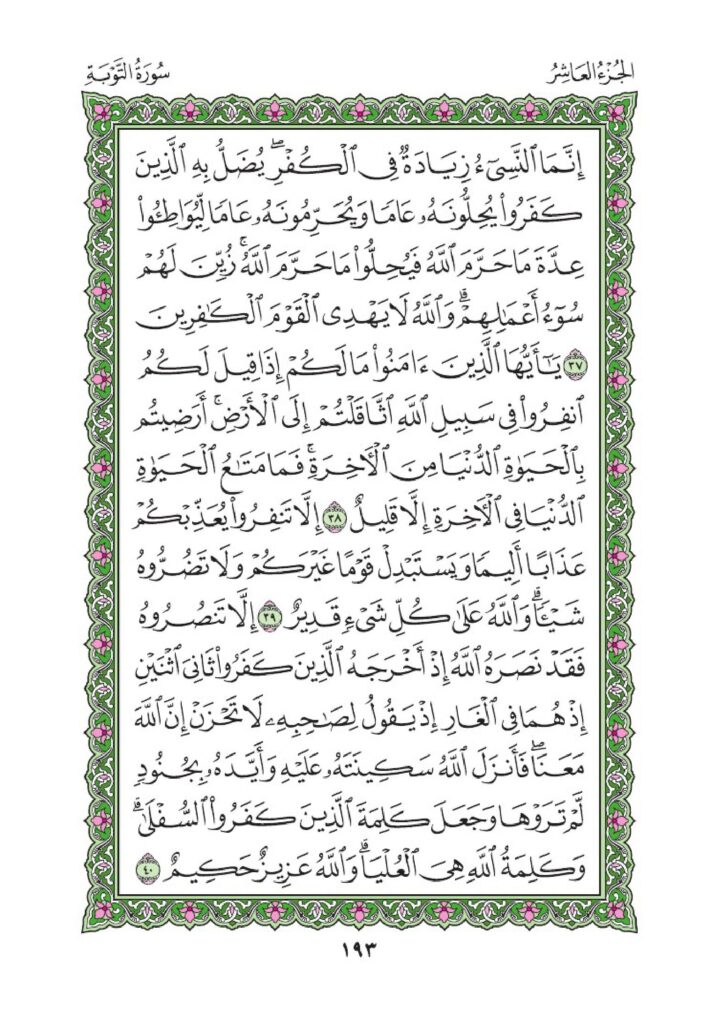 الجُزْءُ العَاشِرُ
سُورَةُ التَّوْبَةِ
إِنَّمَا ٱلنَّسِىٓءُ زِيَادَةٌ فِى ٱلْكُفْرِۖ يُضَلُّ بِهِ ٱلَّذِينَ
كَفَرُوا۟ يُحِلُّونَهُۥ عَامًا وَيُحَرِّمُونَهُۥ عَامًا لِّيُوَاطِـُٔوا۟
عِدَّةَ مَا حَرَّمَ ٱللَّهُ فَيُحِلُّوا۟ مَا حَرَّمَ ٱللَّهُۚ زُيِّنَ لَهُمْ
سُوٓءُ أَعْمَـٰلِهِمْۗ وَٱللَّهُ لَا يَهْدِى ٱلْقَوْمَ ٱلْكَـٰفِرِينَ
٣٧ يَـٰٓأَيُّهَا ٱلَّذِينَ ءَامَنُوا۟ مَا لَكُمْ إِذَا قِيلَ لَكُمُ
ٱنفِرُوا۟ فِى سَبِيلِ ٱللَّهِ ٱثَّاقَلْتُمْ إِلَى ٱلْأَرْضِۚ أَرَضِيتُم
بِٱلْحَيَوٰةِ ٱلدُّنْيَا مِنَ ٱلْـَٔاخِرَةِۚ فَمَا مَتَـٰعُ ٱلْحَيَوٰةِ
ٱلدُّنْيَا فِى ٱلْـَٔاخِرَةِ إِلَّا قَلِيلٌ ٣٨ إِلَّا تَنفِرُوا۟ يُعَذِّبْكُمْ
عَذَابًا أَلِيمًا وَيَسْتَبْدِلْ قَوْمًا غَيْرَكُمْ وَلَا تَضُرُّوهُ
شَيْـًٔاۗ وَٱللَّهُ عَلَىٰ كُلِّ شَىْءٍ قَدِيرٌ ٣٩ إِلَّا تَنصُرُوهُ
فَقَدْ نَصَرَهُ ٱللَّهُ إِذْ أَخْرَجَهُ ٱلَّذِينَ كَفَرُوا۟ ثَانِىَ ٱثْنَيْنِ
إِذْ هُمَا فِى ٱلْغَارِ إِذْ يَقُولُ لِصَـٰحِبِهِۦ لَا تَحْزَنْ إِنَّ ٱللَّهَ
مَعَنَاۖ فَأَنزَلَ ٱللَّهُ سَكِينَتَهُۥ عَلَيْهِ وَأَيَّدَهُۥ بِجُنُودٍ
لَّمْ تَرَوْهَا وَجَعَلَ كَلِمَةَ ٱلَّذِينَ كَفَرُوا۟ ٱلسُّفْلَىٰۗ
وَكَلِمَةُ ٱللَّهِ هِىَ ٱلْعُلْيَاۗ وَٱللَّهُ عَزِيزٌ حَكِيمٌ ٤٠
١٩٣